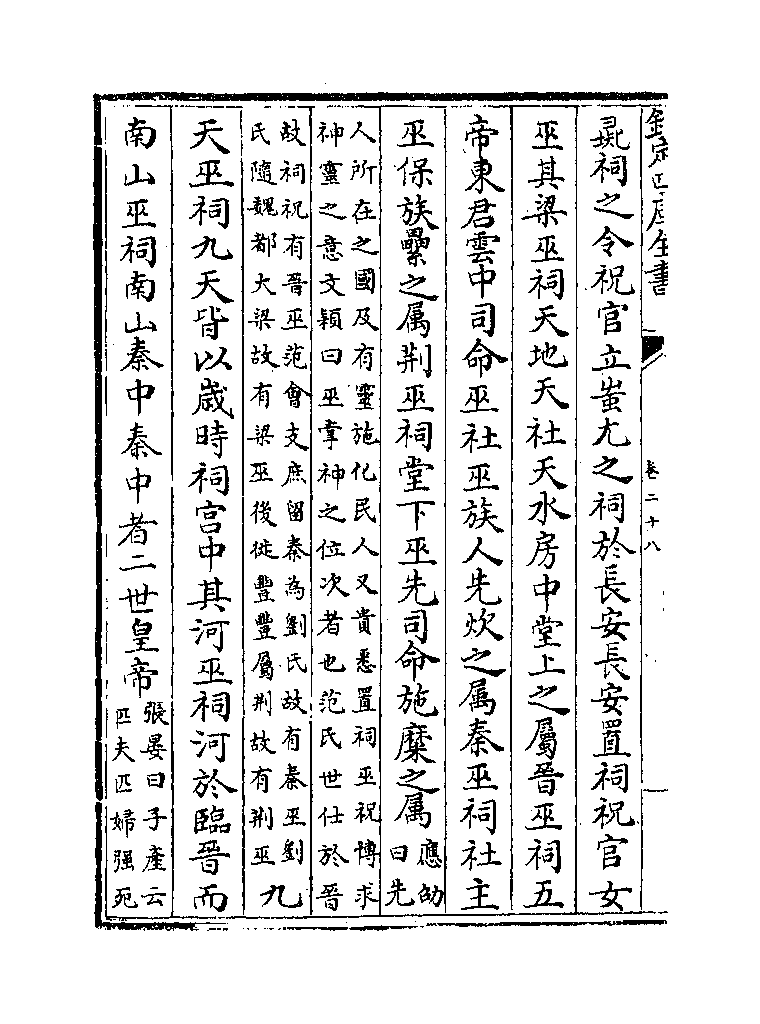 欽定四庫全書
卷二十八
彘祠之令祝官立蚩尤之祠於長安長安置祠祝官女
巫其梁巫祠天地天社天水房中堂上之屬晉巫祠五
帝東君雲中司命巫社巫族人先炊之属秦巫祠社主
巫保族纍之属荆巫祠堂下巫先司命施糜之属應劭
曰先
人所在之國及有靈施化民人又貴悉置祠巫祝博求
神靈之意文穎曰巫掌神之位次者也范氏世仕於晉
故祠祝有晉巫范會支庶留秦為劉氏故有秦巫劉
氏隨魏都大梁故有梁巫後徙豐豐屬荆故有荆巫九
天巫祠九天皆以歲時祠宫中其河巫祠河於臨晉而
南山巫祠南山秦中秦中者二世皇帝張晏曰子產云
匹夫匹婦强死